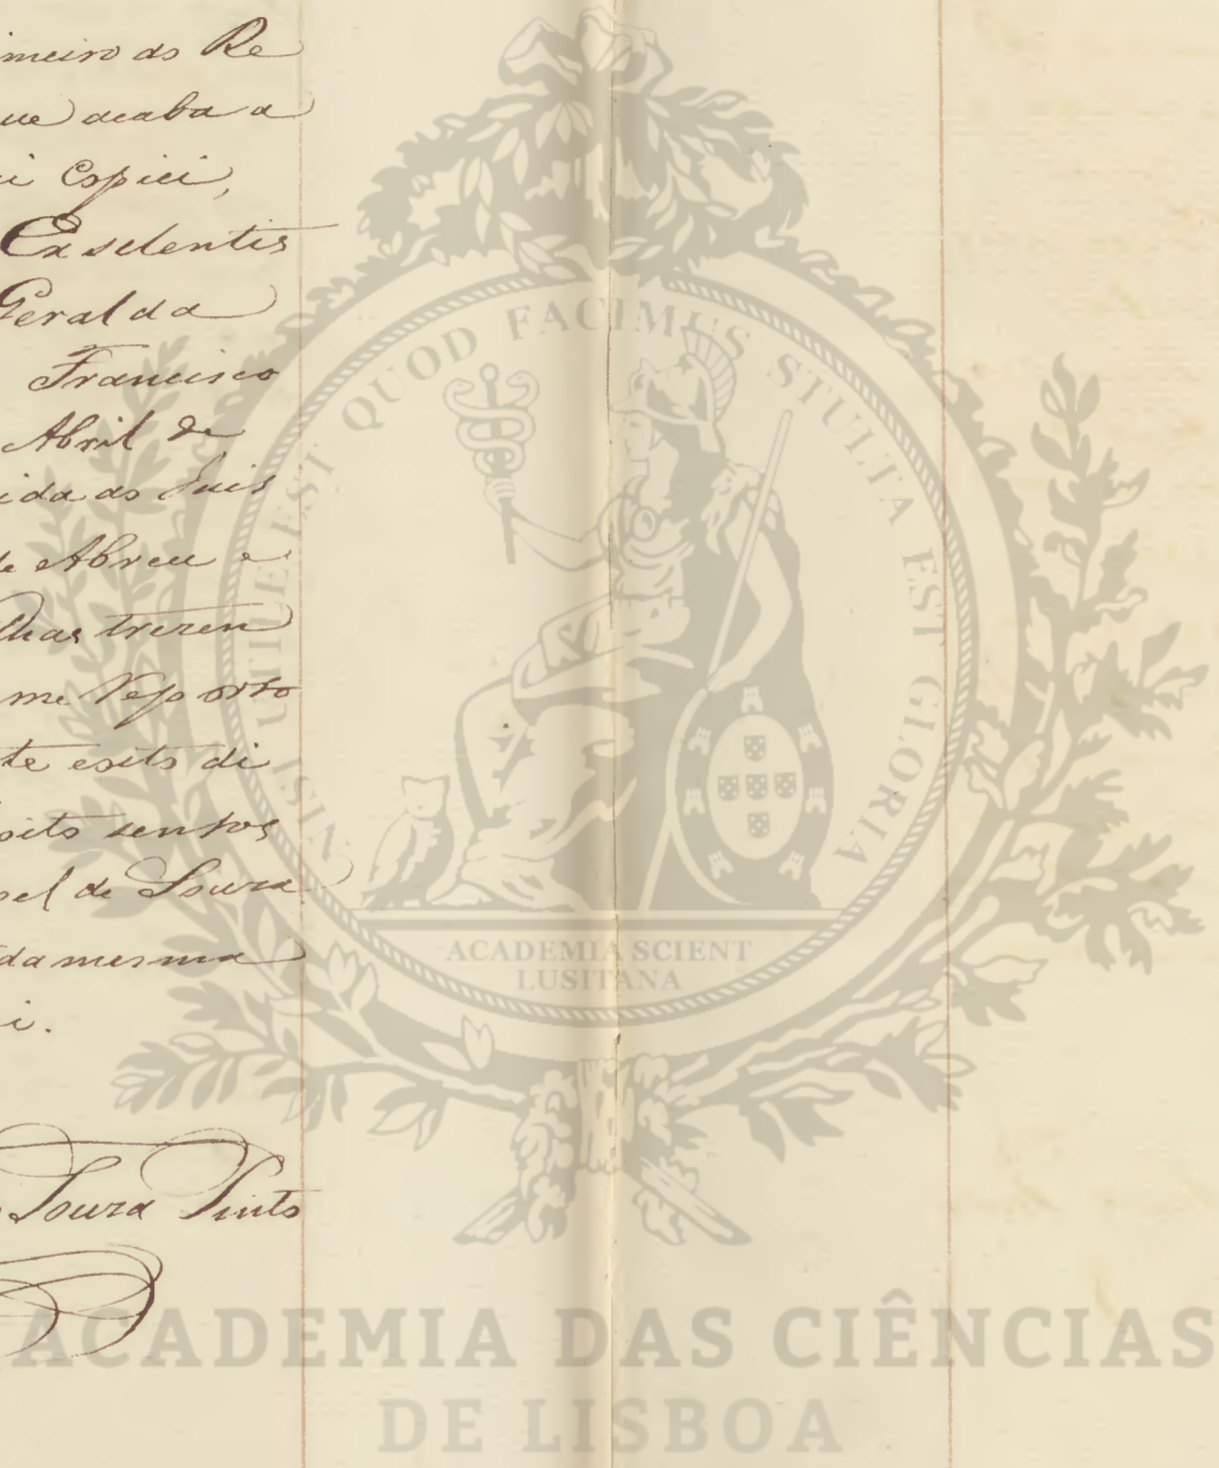 imeiro do Re
ue acaba a
i Copiei,
Exselentis
Geral da
Francisco
Abril de
ida ao Luis
de Abreu e
lhas trezen
me Reporto
te esito di
oito sentos
oel de Souza
da mesma
i.
Souza Pinto
NISI UTILE EST QUOD FACIMUS STULTA EST GLORIA
ACADEMIA SCIENT
LUSITANA
ACADEMIA DAS CIÊNCIAS
DE LISBOA